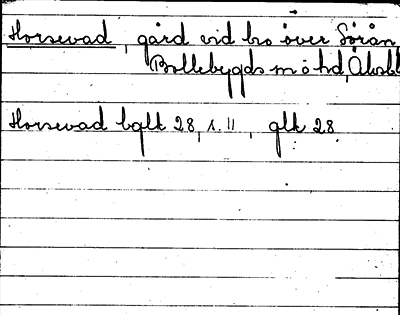 Horsevad, gård vid bro över Sörån,
Bollebygds m ö hd, Älvsbl
Horsevad bglk 28, s. 11, glk 28